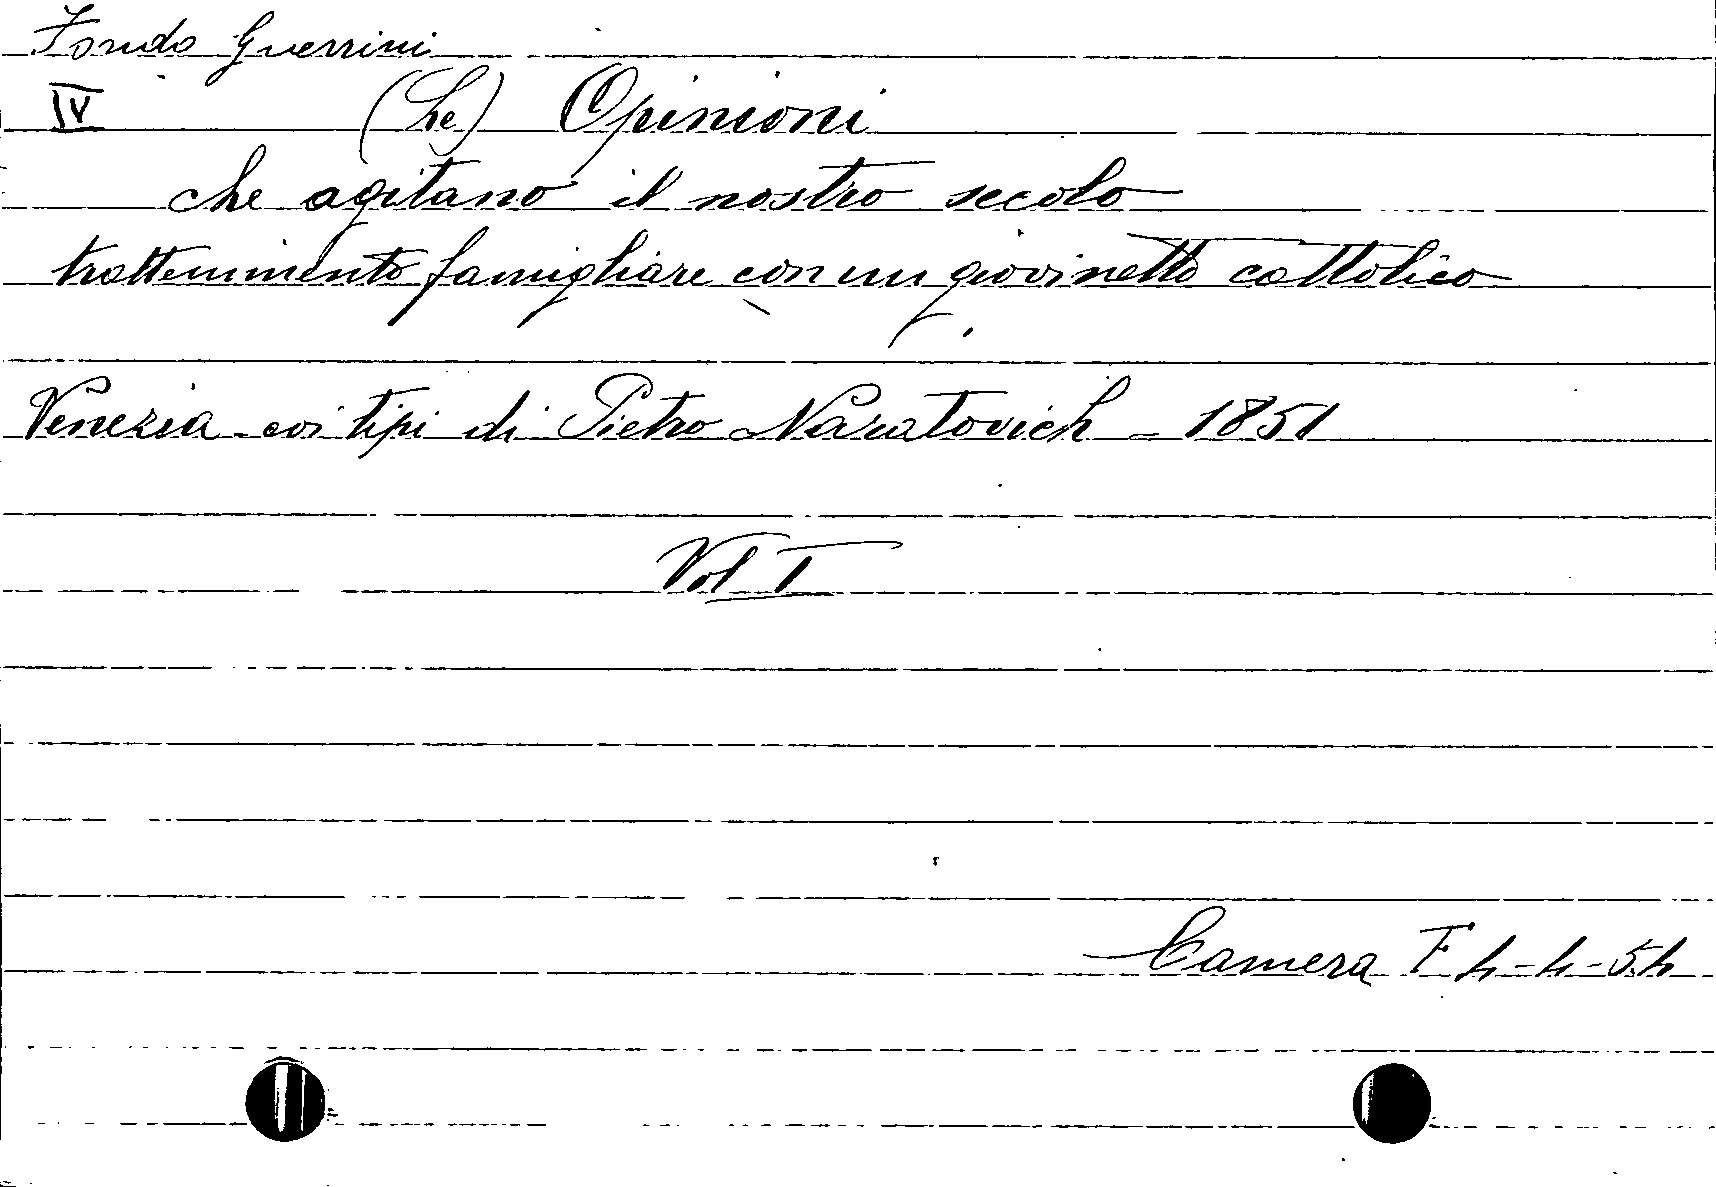 Fondo Guerrini
IV (Le) Opinioni
che agitano il nostro secolo
trattenimento famigliare con un giovinetto cattolico
Venezia - coi tipi di Pietro Naratovich - 1851
Vol I
Camera F 4-4-54